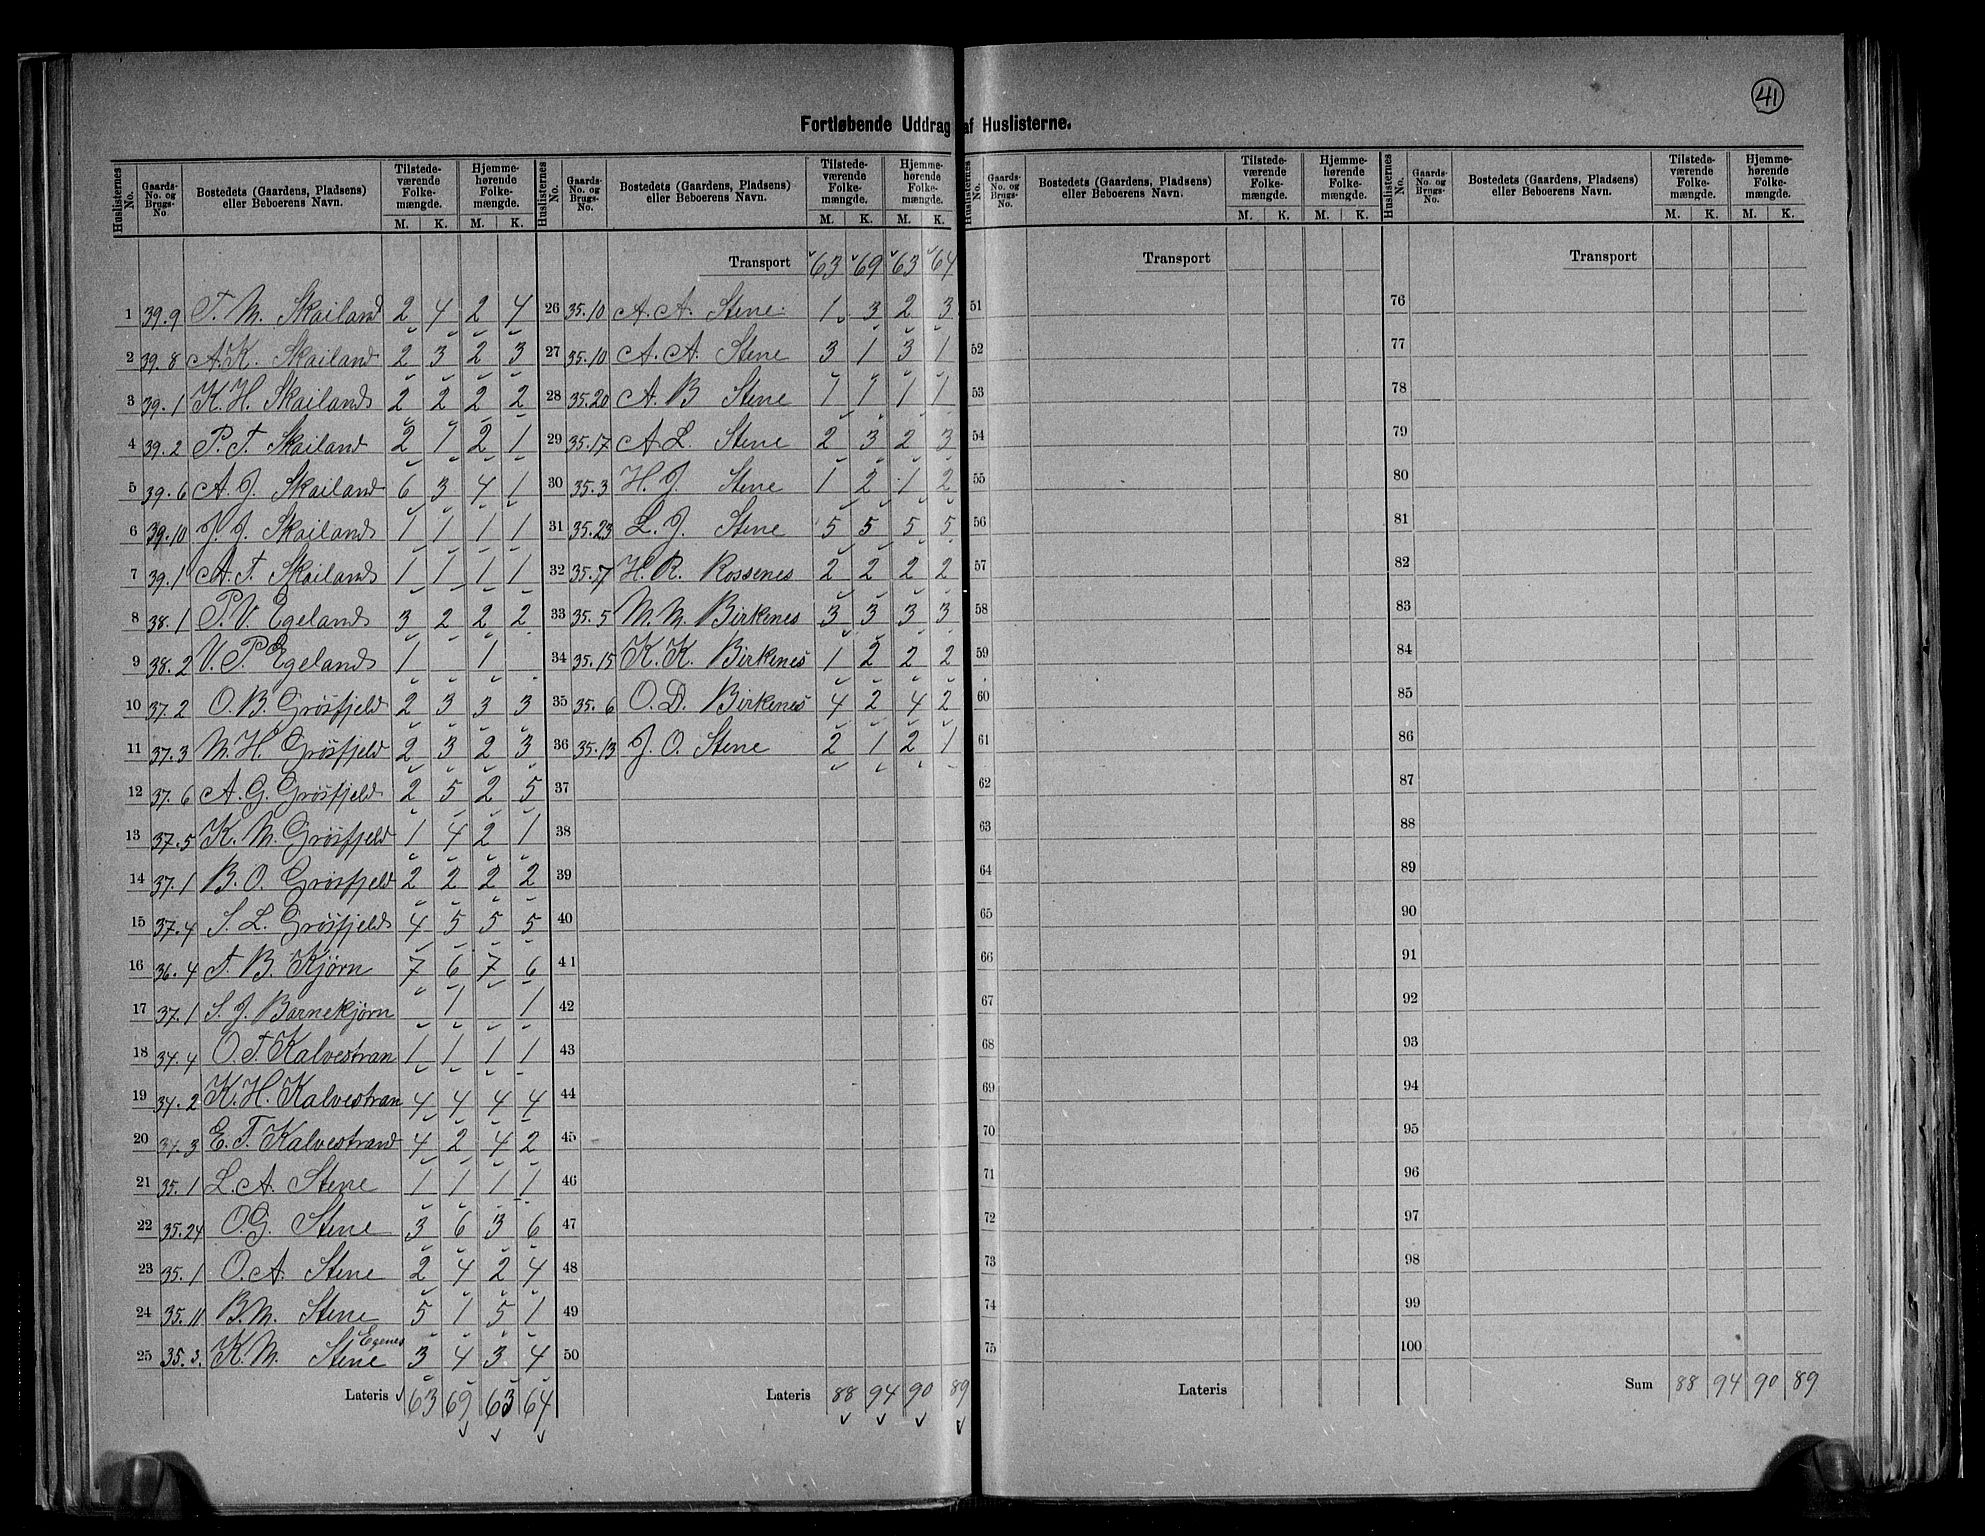 41
Fortløbende Uddrag af Huslisterne.
Huslisternes No. | Gaards-No. og Brugs-No | Bostedets (Gaardens, Pladsens) eller Beboerens Navn. | Tilstede-værende Folke-mængde. M. K. | Hjemme-hørende Folke-mængde. M. K.
1 39.9 T. M. Skailand 2 4 2 4
2 39.8 A. K. Skailand 2 3 2 3
3 39.1 K. H. Skailand 2 2 2 2
4 39.2 P. T. Skailand 2 1 2 1
5 39.6 A. J. Skailand 6 3 4 1
6 39.10 J. J. Skailand 1 1 1 1
7 39.1 A. T. Skailand 1 1 1 1
8 38.1 P. V. Egeland 3 2 2 2
9 38.2 V. P. Egeland 1 1
10 37.2 O. B. Grösfjeld 2 3 3 3
11 37.3 M. H. Grösfjeld 2 3 2 3
12 37.6 A. G. Grösfjeld 2 5 2 5
13 37.5 K. M. Grösfjeld 1 4 2 1
14 37.1 B. O. Grösfjeld 2 2 2 2
15 37.4 S. L. Grösfjeld 4 5 5 5
16 36.4 T. B. Kjørn 7 6 7 6
17 37.1 S. J. Barnekjørn 1 1
18 34.4 O. T. Kalvestran 1 1 1 1
19 34.2 K. H. Kalvestran 4 4 4 4
20 34.3 E. T. Kalvestrand 4 2 4 2
21 35.1 L. A. Stene 1 1 1 1
22 35.24 O. G. Stene 3 6 3 6
23 35.1 O. A. Stene 2 4 2 4
24 35.11 B. M. Stene 5 1 5 1
25 35.3. K. M. Stene Egenes 3 4 3 4
Lateris 63 69 63 64
Huslisternes No. | Gaards-No. og Brugs-No. | Bostedets (Gaardens, Pladsens) eller Beboerens Navn. | Tilstede-værende Folke-mængde. M. K. | Hjemme-hørende Folke-mængde. M. K.
Transport 63 69 63 64
26 35.10 A. A. Stene 1 3 2 3
27 35.10 A. A. Stene 3 1 3 1
28 35.20 A. B Stene 1 1 1 1
29 35.17 A L. Stene 2 3 2 3
30 35.3 H. J. Stene 1 2 1 2
31 35.23 L. J. Stene 5 5 5 5
32 H. R. Rossenes 2 2 2 2
33 35.5 M. M. Birkenes 3 3 3 3
34 35.15 K. K. Birkenes 1 2 2 2
35 35.6 O. D. Birkenes 4 2 4 2
36 35.13 J. O. Stene 2 1 2 1
37
38
39
40
41
42
43
44
45
46
47
48
49
50
Lateris 88 94 90 89
Huslisternes No. | Gaards-No. og Brugs-No. | Bostedets (Gaardens, Pladsens) eller Beboerens Navn. | Tilstede-værende Folke-mængde. M. K. | Hjemme-hørende Folke-mængde. M. K.
Transport
51
52
53
54
55
56
57
58
59
60
61
62
63
64
65
66
67
68
69
70
71
72
73
74
75
Lateris
Huslisternes No. | Gaards-No. og Brugs-No. | Bostedets (Gaardens, Pladsens) eller Beboerens Navn. | Tilstede-værende Folke-mængde. M. K. | Hjemme-hørende Folke-mængde. M. K.
Transport
76
77
78
79
80
81
82
83
84
85
86
87
88
89
90
91
92
93
94
95
96
97
98
99
100
Sum 88 94 90 89